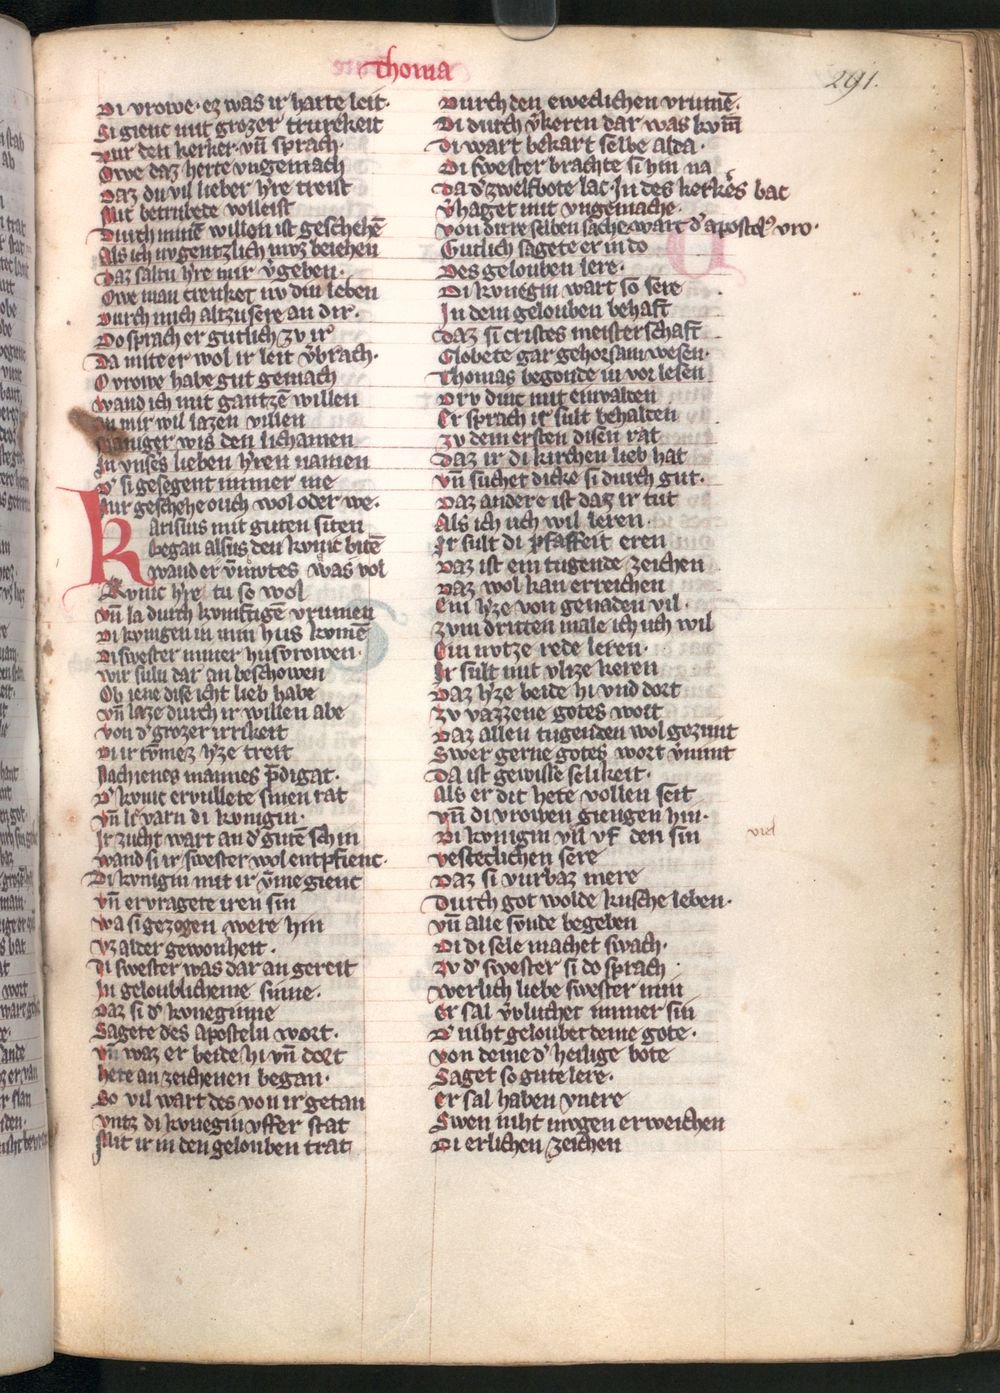 Thoma
291.
Di vrowe· ez was ir harte leit·
Si gienc mit grozer trurekeit
vur den kerker vn̄ sprach·
Owe daz herte vngemach
Daz du vil lieber h're treist
Mit betrubete volleist
Durch minē willen ist geschehē
Als ich nv gentzlich mvz beiehen
Daz saltu h're mir v̄geben·
Owe man crenket nv din leben
Durch mich altzusere an dir·
Do sprach er gutlich zv ir
Da mite er wol ir leit v̄brach·
O vrowe habe gut gemach
wand ich mit gantzē willen
In mir wil lazen villen
Maniger wis den lichamen
In vnses lieben h'ren namen
D' si gesegent immer me
Mir geschehe ouch wol oder we·
Karisius mit guten siten
began alsus den kvnic bitē
wand er v̄mvtes was vol
Kvnic h're tu so wol
vn̄ la durch kvnftigē vrumen
Di kvnigen in min hus kvmē
Di swester miner husvrowen·
wir suln dar an beschowen
Ob iene dise icht lieb habe
vn̄ laze durch ir willen abe
von d' grozer irrikeit
Di ir tv̄mez h'ze treit
Nach ienes mannes p̄digat·
D' kvnic ervullete sinen rat
vn̄ lie varn di kvnigin·
Ir zucht wart an d' gutē schin
wand si ir swester wol entpfienc·
Di kvnigin mit ir v̄me gienc
vn̄ ervragete iren sin
wa si gezogen were hin
vz alder gewonheit·
Di swester was dar an gereit
In geloublicheme sinne·
Daz si d' kvneginne
Sagete des Aposteln wort·
vn̄ waz er beide hi vn̄ dort
hete an zeichenen began·
So vil wart des von ir getan
vntz di kvnegin vffer stat
Mit ir in den gelouben trat
Durch den eweclichen vrumē·
Di durch v̄keren dar was kvm̄
Di wart bekart selbe alda·
Di swester brachte si hin na
Da d' zwelfbote lac· In des kerkers bac
v̄haget mit vngemache·
von dirre selben sache wart d' apostel vro·
Gutlich sagete er in do
Des gelouben lere·
Di kvnegin wart so sere
In dem gelouben behaft
Daz si cristes meisterschaft
Globete gar gehorsam wesen·
Thomas begonde in vor lesen
Drv dinc mit einvalden
Er sprach ir sult behalten
Zv dem ersten disen rat
Daz ir di kirchen lieb hat
vn̄ suchet dicke si durch gut·
Daz andere ist daz ir tut
Als ich uch wil leren·
Ir sult di pfaffeit eren
Daz ist ein tugende zeichen
Daz wol kan erreichen
Ein h'ze von genaden vil·
Zvm dritten male ich uch wil
Ein nvtze rede leren·
Ir sult mit vlize keren
Daz h'ze beide hi vnd dort
Zv vazzene gotes wort
Daz allen tugenden wol gezimt
Swer gerne gotes wort v̄nimt
Da ist gewisse selikeit·
Als er dit hete vollen seit
vn̄ di vrowen giengen hin·
Di kvnigin viel vf den sin
vestecliclhen sere
Daz si vurbaz mere
Durch got wolde kusche leben·
vn̄ alle sv̄nde begeben
Di di sele machet swach·
Zv d' swester si do sprach·
werlich liebe swester min
er sal v̄vluchet immer sin
D' niht geloubet deme gote·
von deme d' heilige bote
Saget so gute lere·
er sal haben vnere
Swen niht mogen erweichen
Di erlichen zeichen
viel